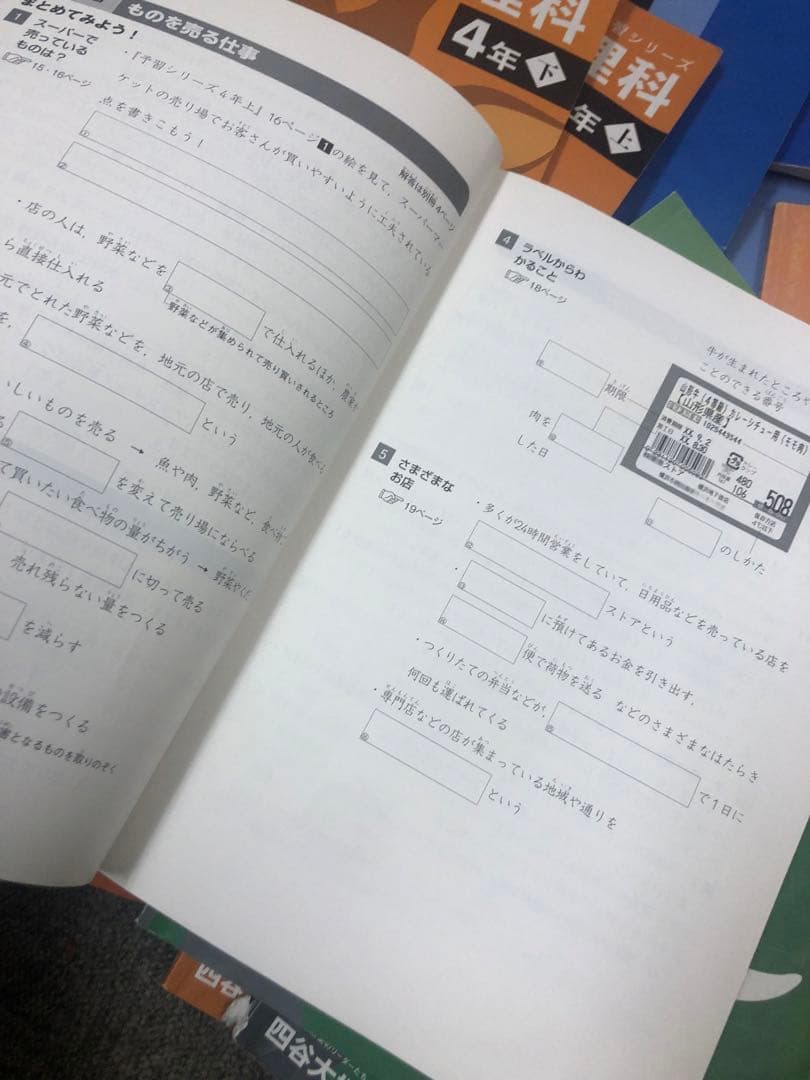 まとめてみよう！
ものを売る仕事
1 スーパーで
売っている
ものは？
15・16ページ
解答は別冊4ページ
・『予習シリーズ4年上』16ページ1の絵を見て，スーパーマー
ケットの売り場でお客さんが買いやすいように工夫されている
点を書きこもう！
①
②
・店の人は，野菜などを
で仕入れるほか，農家か
野菜などが集められて売り買いされるところ
ら直接仕入れる
元でとれた野菜などを，地元の店で売り，地元の人が食べる
を，
という
しいものを売る → 魚や肉，野菜など，食べ
を変えて売り場にならべる
て買いたい食べ物の量がちがう → 野菜や
に切って売る
売れ残らない量をつくる
を減らす
設備をつくる
害となるものを取りのぞく
4 ラベルからわ
かること
18ページ
牛が生まれたところや
ことのできる番号
期限
肉を
した日
のしかた
山形牛（4等級）カレーシチュー用（モモ角）
【山形県産】
1025443544
消費期限 XX.9.2
加工日 XX.8.30
490
106
508
保存方法
4℃以下
5 さまざまな
お店
19ページ
・多くが24時間営業をしていて，日用品などを売っている店を
ストアという
・
に預けてあるお金を引き出す，
便で荷物を送る などのさまざまなはたらき
・つくりたての弁当などが，
で1日に
何回も運ばれてくる
・専門店などの店が集まっている地域や通りを
という
理科
4年 下
習シリーズ
理科
年 上
四谷
四谷大